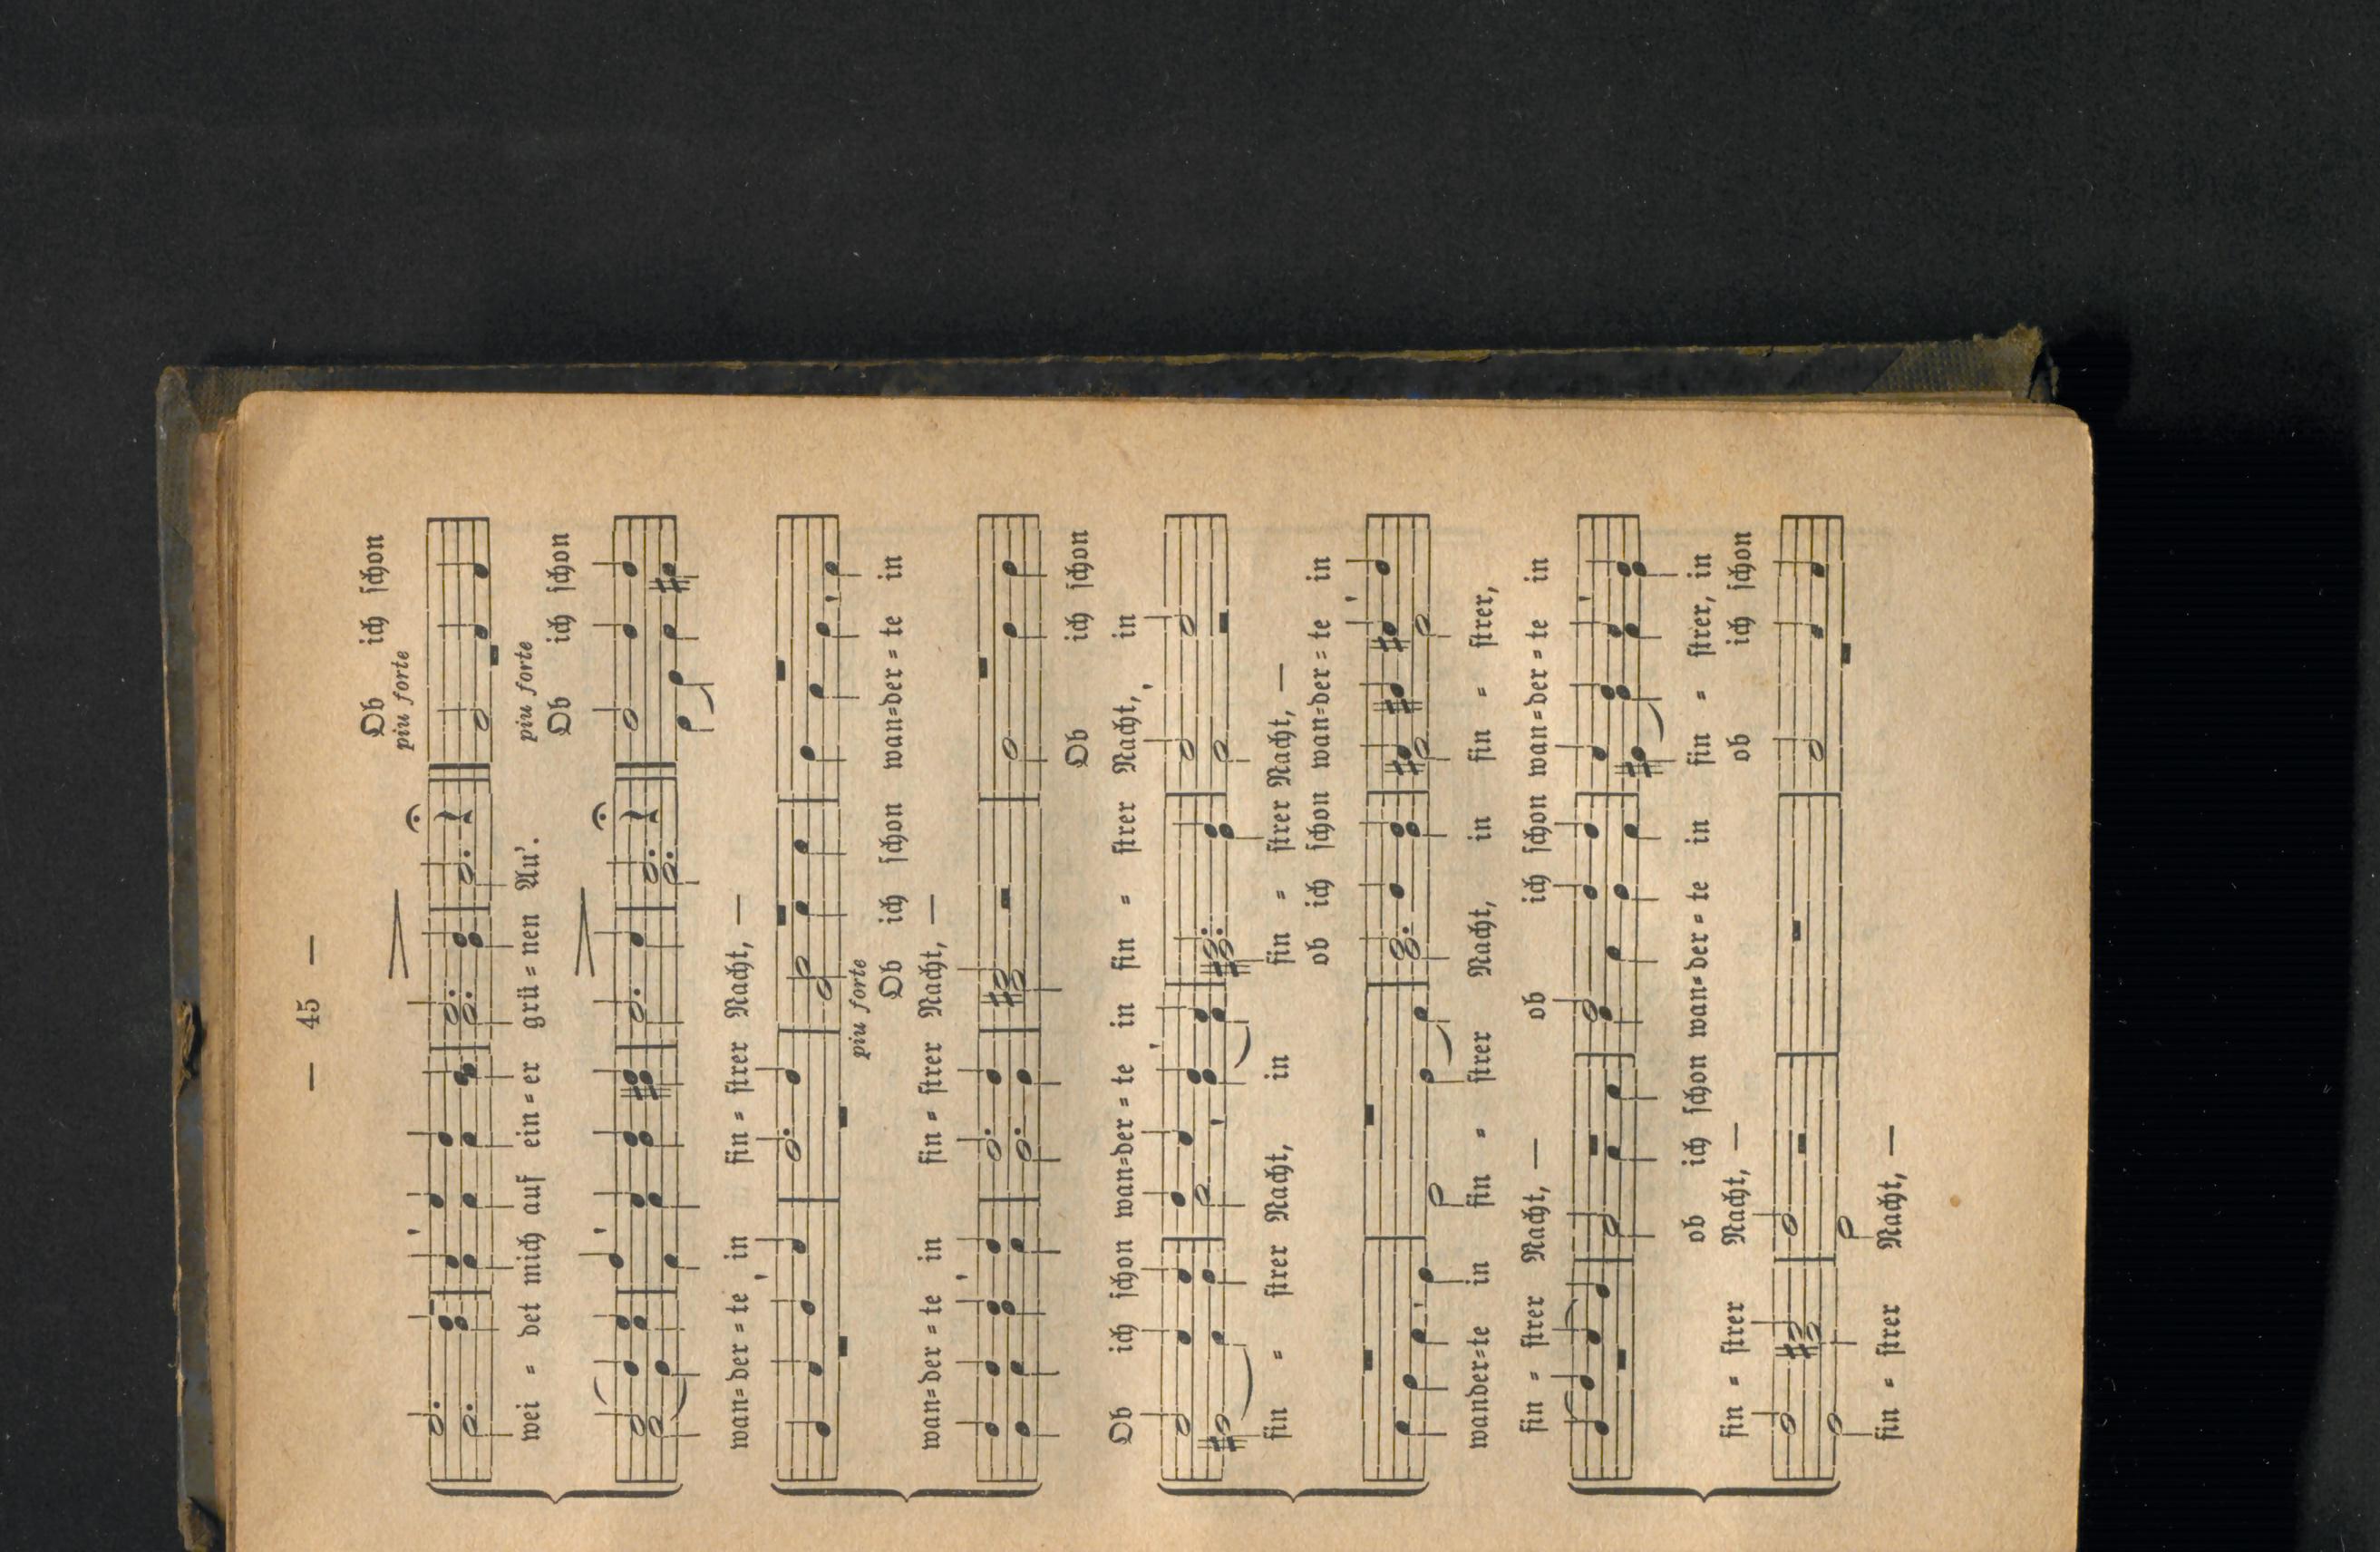 — 45 —
Ob ich schon
piu forte
wei = det mich auf ein = er grü = nen Au'.
piu forte
Ob ich schon
wan = der = te in fin = strer Nacht, —
piu forte
Ob ich schon wan = der = te in
wan = der = te in fin = strer Nacht, —
Ob ich schon
Ob ich schon wan = der = te in fin = strer Nacht, in
fin = strer Nacht, in fin = strer Nacht, —
ob ich schon wan = der = te in
wander = te in fin = strer Nacht, in fin = strer,
fin = strer Nacht, — ob ich schon wan = der = te in
ob ich schon wan = der = te in fin = strer, in
fin = strer Nacht, — ob ich schon
fin = strer Nacht, —